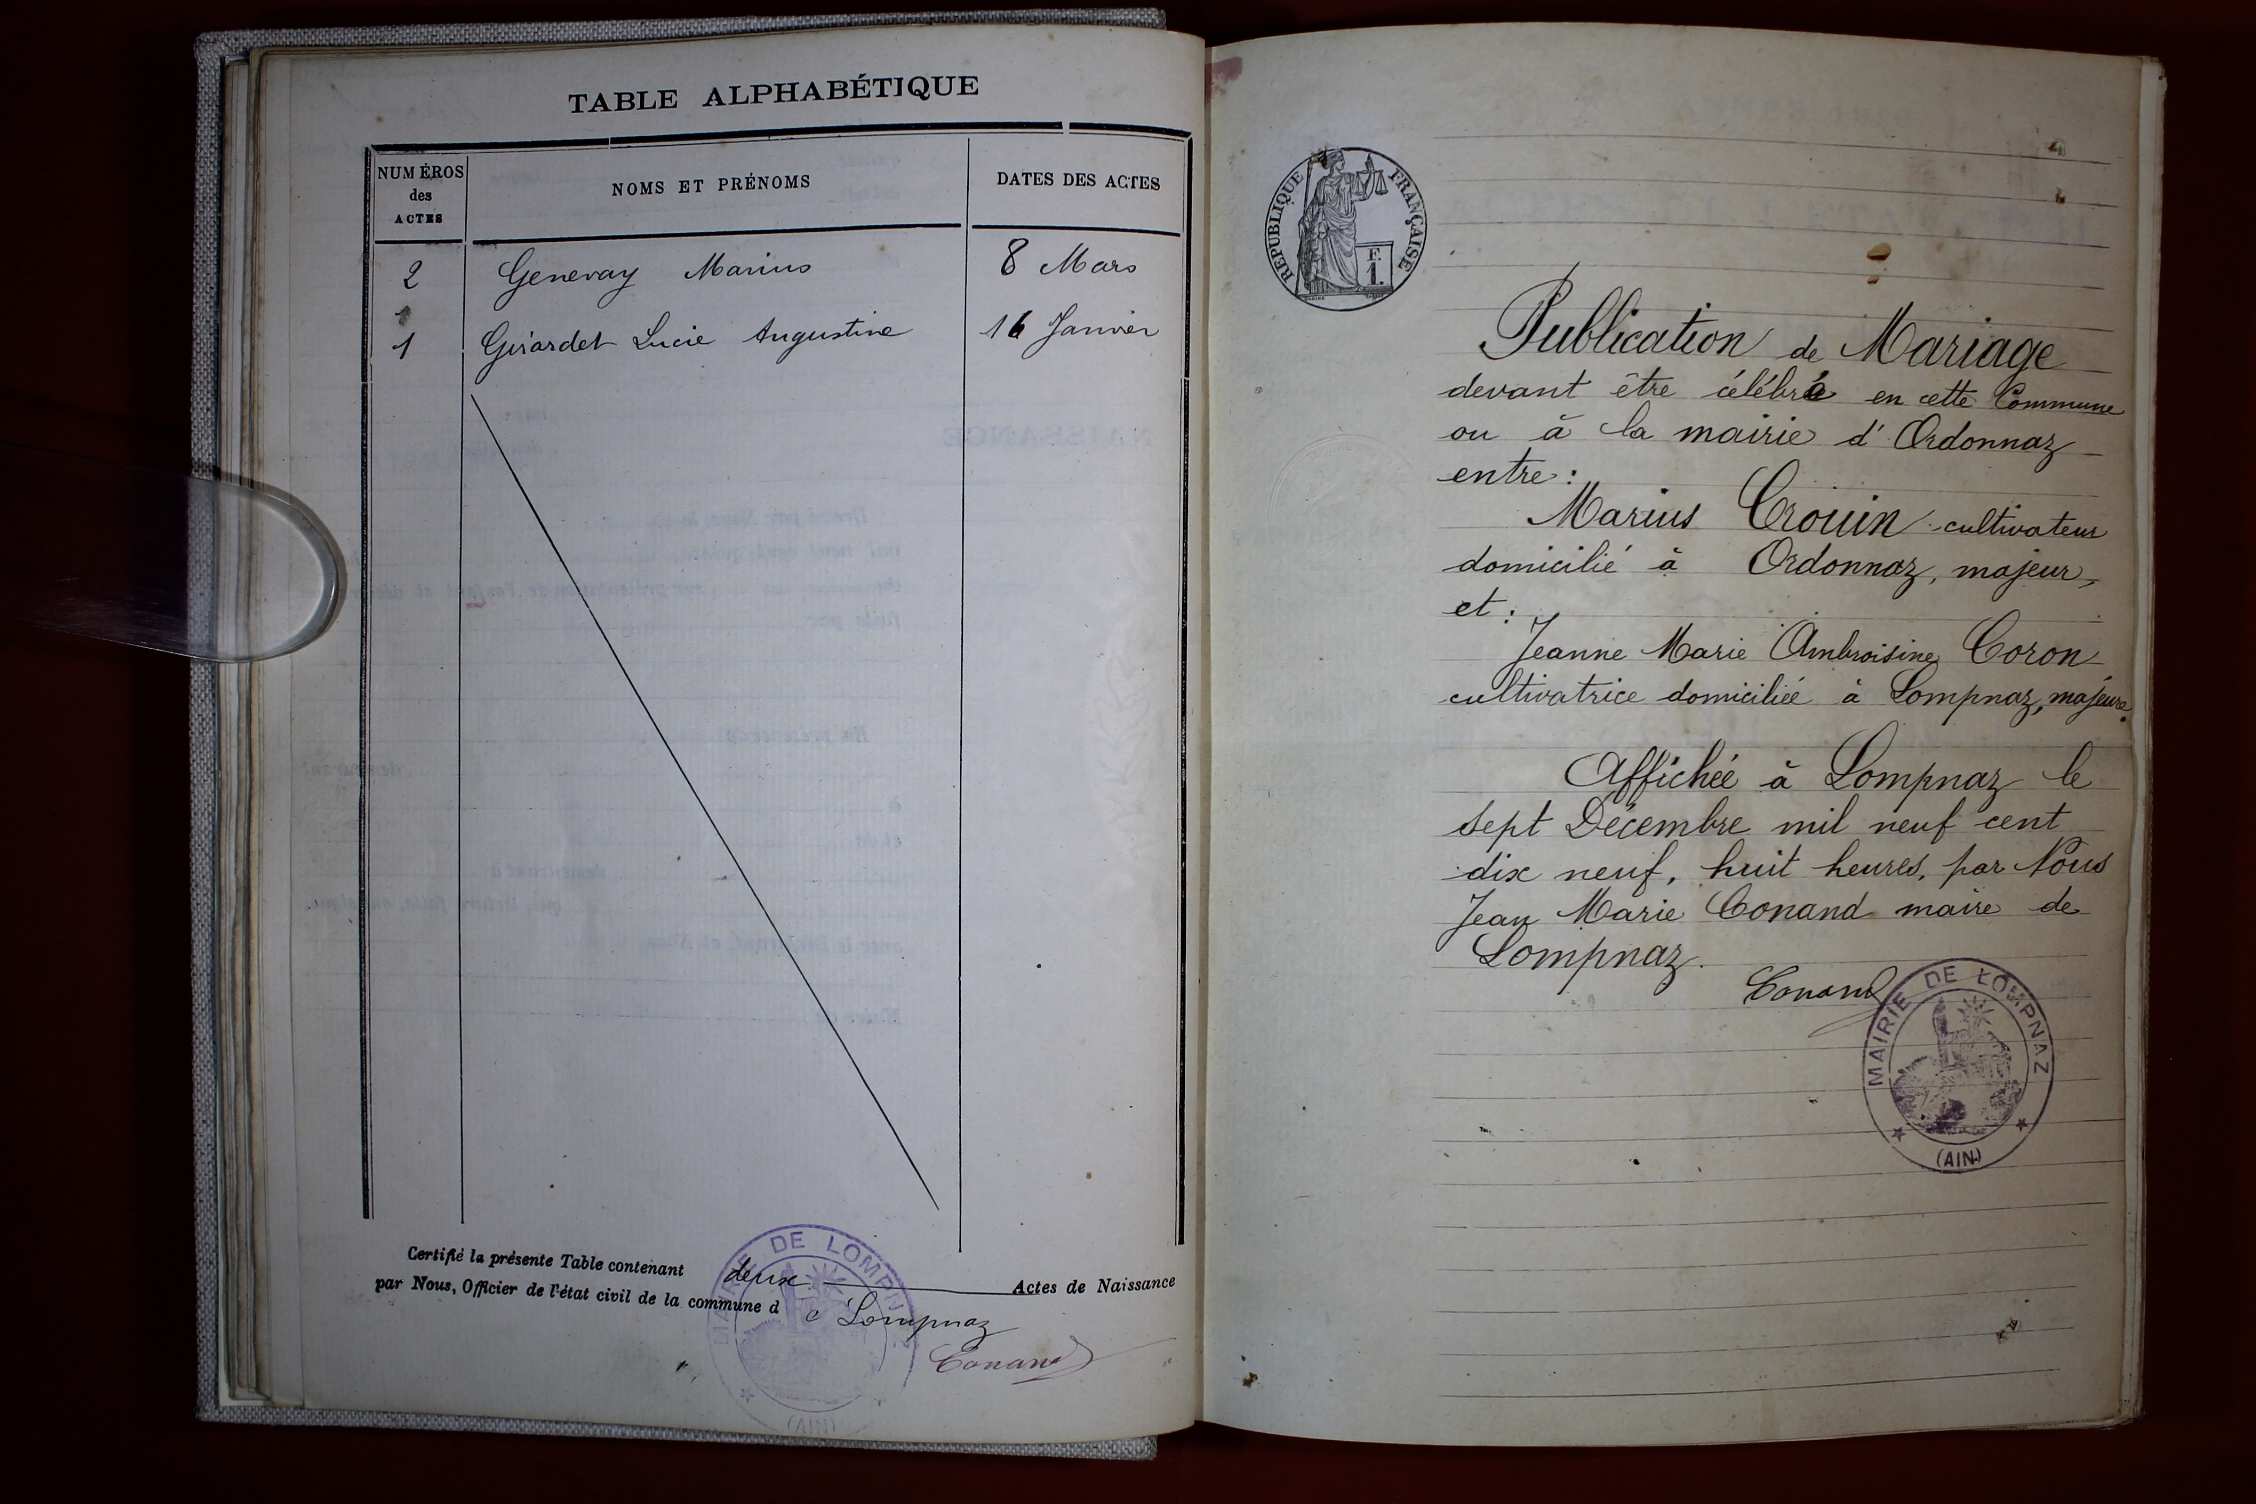 TABLE ALPHABÉTIQUE
NUMÉROS
des
ACTES
NOMS ET PRÉNOMS
DATES DES ACTES
2 Genevay Marius 8 Mars
1 Girardet Lucie Augustine 16 Janvier
Certifié la présente Table contenant deux Actes de Naissance
par Nous, Officier de l'état civil de la commune d e Lompnaz
Conand
MAIRIE DE LOMPNAZ
(AIN)
RÉPUBLIQUE FRANÇAISE
F.
1.
Publication de Mariage
devant être célébré en cette Commune
ou à la mairie d'Ordonnaz
entre :
Marius Crouin cultivateur
domicilié à Ordonnaz, majeur,
et :
Jeanne Marie Ambroisine Coron
cultivatrice domiciliée à Lompnaz, majeure.
Affichée à Lompnaz le
sept Décembre mil neuf cent
dix neuf, huit heures, par Nous
Jean Marie Conand maire de
Lompnaz.
Conand
MAIRIE DE LOMPNAZ
(AIN)